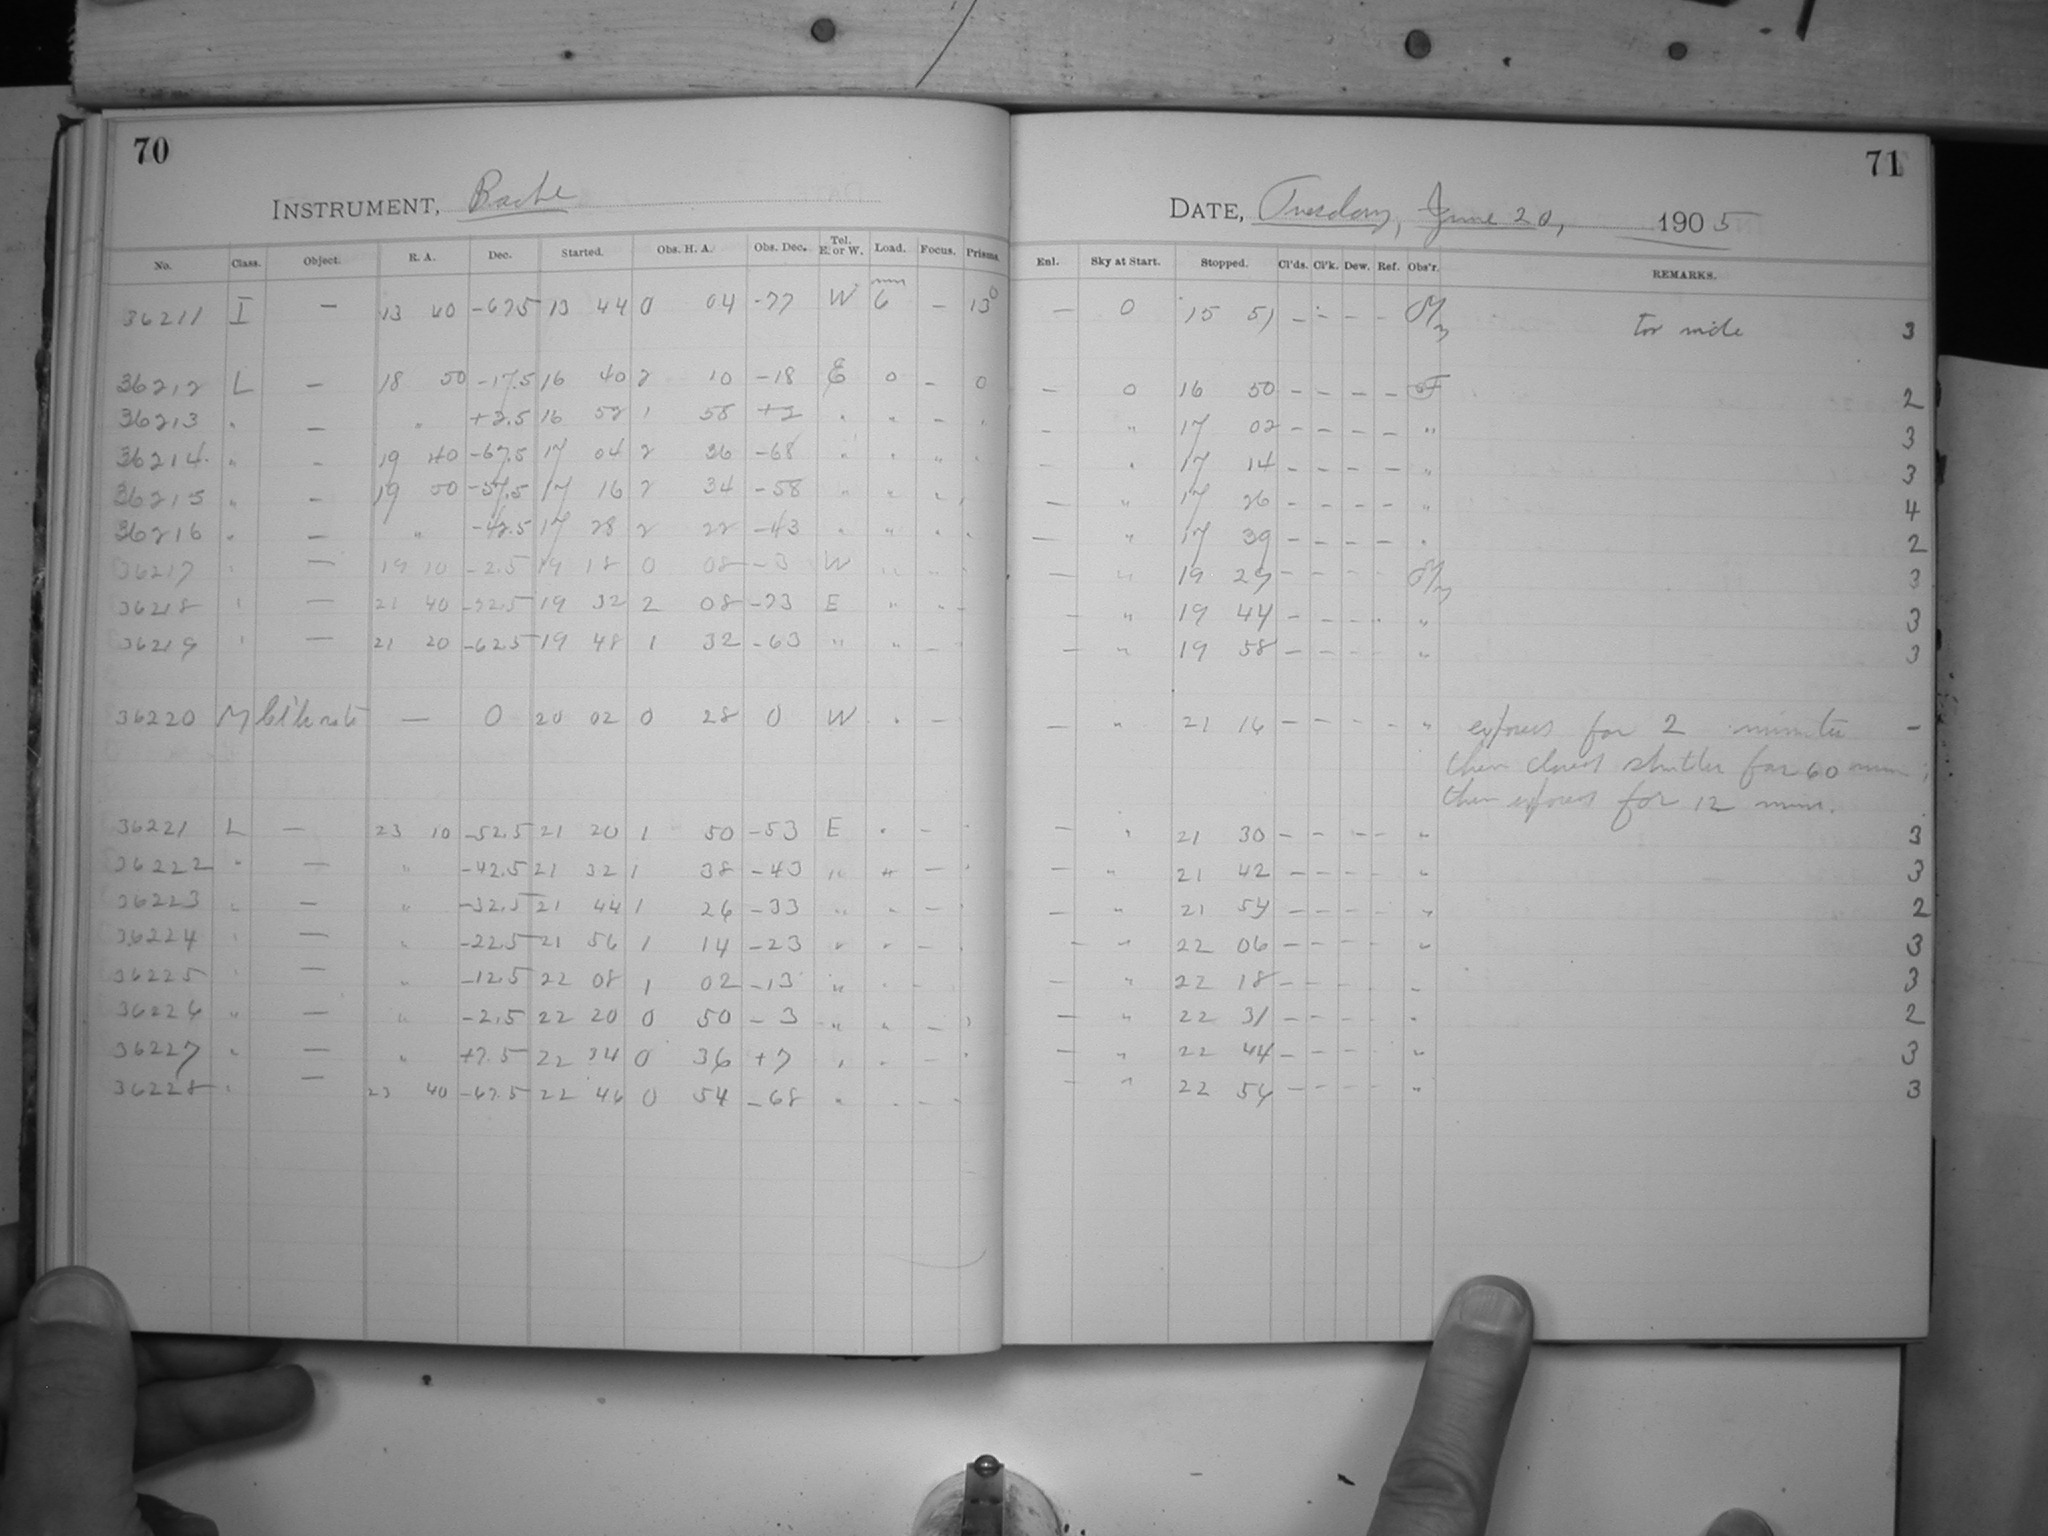 70
INSTRUMENT, Bache
No. Class. Object. R. A. Dec. Started. Obs. H. A. Obs. Dec. Tel. E. or W. Load. Focus. Prisms.
36211 I — 13 40 -67.5 13 44 0 04 -77 W 6 mm — 13°
36212 L — 18 50 -17.5 16 40 2 10 -18 E 0 - 0
36213 " — " +2.5 16 52 1 58 +2 " " - "
36214 " - 19 40 -67.5 17 04 2 36 -68 " " " "
36215 " - 19 50 -57.5 17 16 2 34 -58 " " " "
36216 " — " -42.5 17 28 2 22 -43 " " " "
36217 " — 19 10 -2.5 19 18 0 08 -3 W " "
36218 " — 21 40 -72.5 19 32 2 08 -73 E " "
36219 " — 21 20 -62.5 19 48 1 32 -63 " " -
36220 M — 0 20 02 0 28 0 W " -
36221 L — 23 10 -52.5 21 20 1 50 -53 E " - "
36222 " — " -42.5 21 32 1 38 -43 " " — "
36223 " — " -32.5 21 44 1 26 -33 " " — "
36224 " — " -22.5 21 56 1 14 -23 " " - "
36225 " — " -12.5 22 08 1 02 -13 " " -
36226 " — " -2.5 22 20 0 50 -3 " " — "
36227 " — " +7.5 22 34 0 36 +7 " " - "
36228 " — 23 40 -67.5 22 46 0 54 -68 " " - -
71
DATE, Tuesday, June 20, 1905
Enl. Sky at Start. Stopped. Cl'ds. Cl'k. Dew. Ref. Obs'r. REMARKS.
— 0 15 51 — — — — 3
— 0 16 50 — — — — 2
- " 17 02 — — — — " 3
— " 17 14 — — — — " 3
— " 17 26 - - - - " 4
— " 17 39 — — — — " 2
— " 19 29 - - - - 3
— " 19 44 — - - - " 3
— " 19 58 — - - - " 3
— " 21 16 — - - - " exposed for 2 minutes —
then closed shutter for 60 mm;
then exposed for 12 mins.
— " 21 30 — — — — " 3
— " 21 42 — — — — " 3
— " 21 54 — — — - " 2
— " 22 06 — — — — " 3
— " 22 18 — — - - " 3
— " 22 31 - - - - " 2
— " 22 44 — - - - " 3
— " 22 56 — — — - " 3